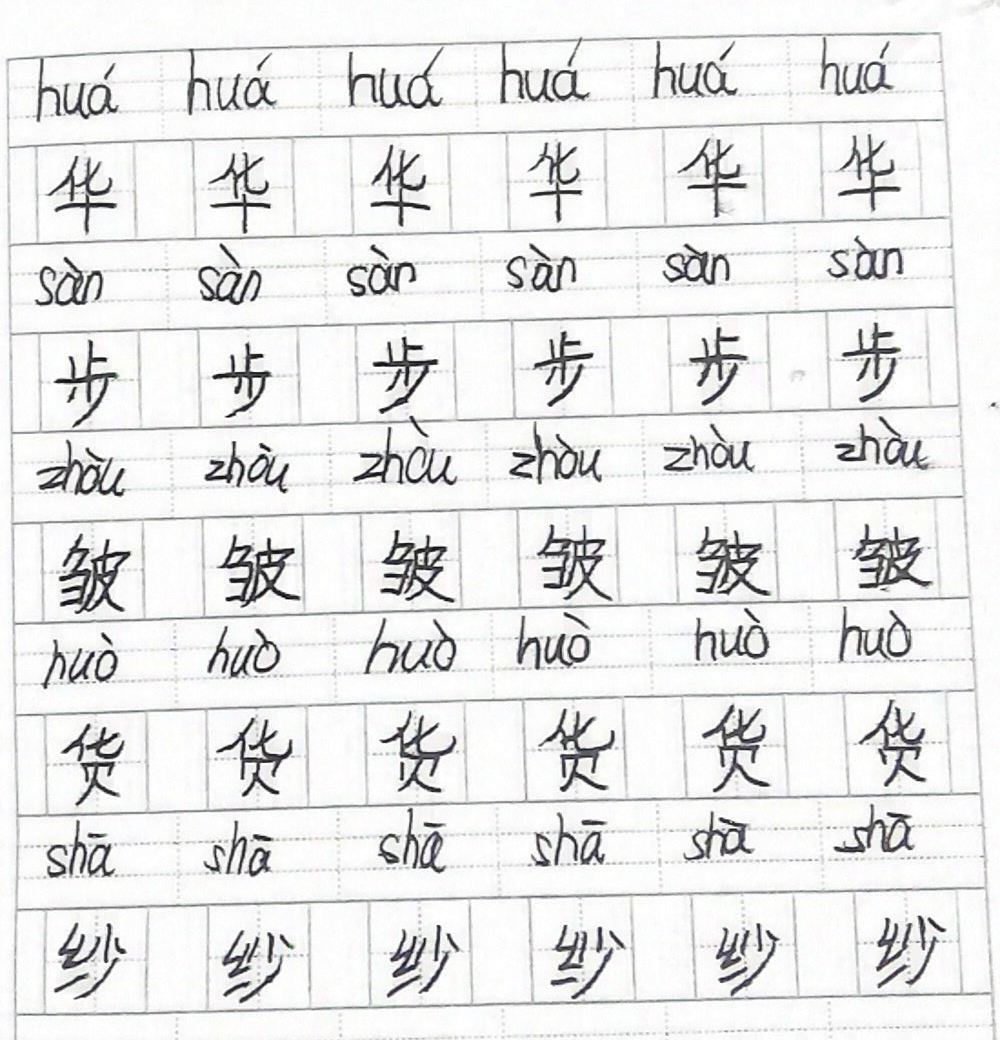 huá huá huá huá huá huá
华 华 华 华 华 华
sàn sàn sàn sàn sàn sàn
步 步 步 步 步 步
zhòu zhòu zhòu zhòu zhòu zhòu
皱 皱 皱 皱 皱 皱
huò huò huò huò huò huò
货 货 货 货 货 货
shā shā shā shā shā shā
纱 纱 纱 纱 纱 纱